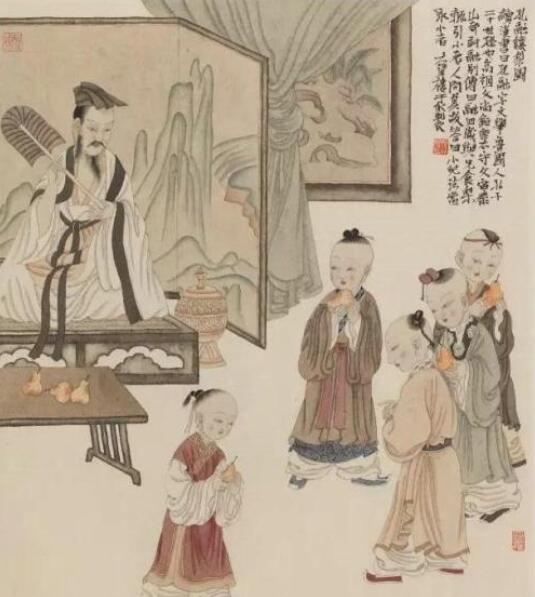 孔融讓梨圖
續漢書曰孔融字文舉魯國人孔子
二十世孫也高祖父尚鉅鹿太守父宙泰
山都尉融別傳曰融四歲與兄食梨
輒引小者人問其故答曰小兒法當
取小者